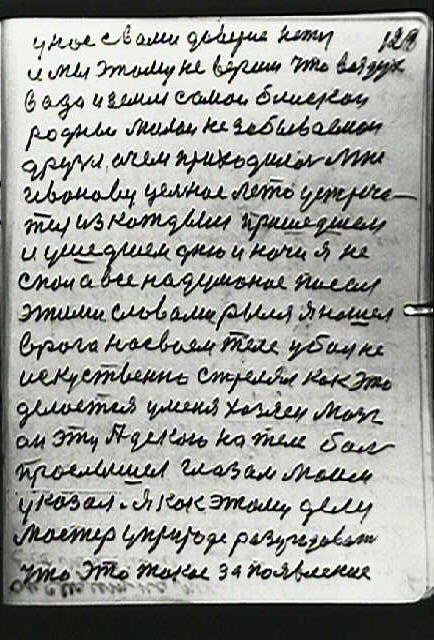 у нас с вами доверие нету 128
и мы этому не верим что воздух
вода и земля самои близкои
роднои милои не забываемои
друзя о чем приходилос мне
Иванову целное лето
тся из каждым пришедшем
и ушедшем дню и ночи я не
спал а все надуманое писал
этими словами рылся я нашел
врага на своем теле убил не
искуственно стрелял как это
делается у меня хозяеи мозг
он эту на теле бол
прослышел глазам моим
указал. Я как этому делу
мастер у природе разугадоват
что это такое за появление